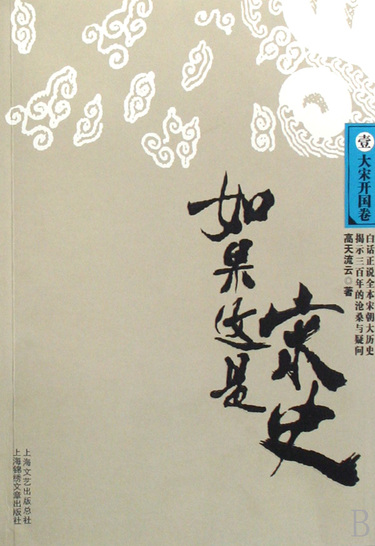 壹
大宋开国卷
白话正说全本宋朝大历史
揭示三百年的沧桑与疑问
高天流云◎著
如果这是
宋史
上海文艺出版总社
上海锦绣文章出版社
B